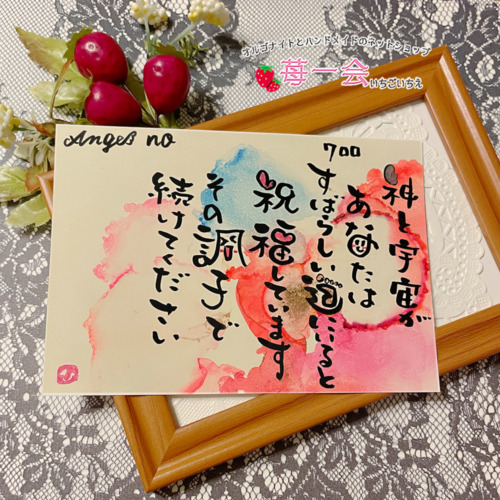 オルゴナイトとハンドメイドのネットショップ
苺一会
いちごいちえ
Angel no
700
神と宇宙が
あなたは
すばらしい道にいると
祝福しています
その調子で
続けてください